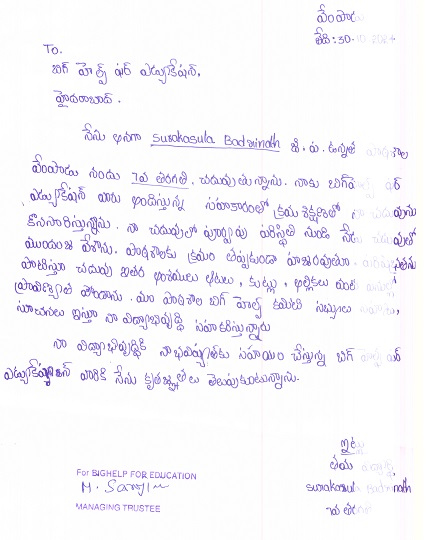 వేంపాడు
తేది: 30-10-2024
To.
బిగ్ హెల్ప్ ఫర్ ఎడ్యుకేషన్,
హైదరాబాద్.
నేను అనగా Surakasula Badrinath జి. ప. ఉన్నత పాఠశాల
వేంపాడు నందు 7వ తరగతి, చదువుతున్నాను. నాకు బిగ్ హెల్ప్ ఫర్
ఎడ్యుకేషన్ వారు అందిస్తున్న సహకారంతో క్రమ శిక్షణతో నా చదువును
కొనసాగిస్తున్నాను. నా చదువులో పూర్వపు పరిస్థితి నుండి నేడు చదువులో
ముందంజ వేశాను. పాఠశాలకు క్రమం తప్పకుండా హాజరవుతూ
పాటిస్తూ చదువు ఇతర అంశములు ఆటలు, కుట్లు, అల్లికలు
ప్రావీణ్యత పొందాను. మా పాఠశాల బిగ్ హెల్ప్ కమిటీ సభ్యులు
సూచనలు ఇస్తూ నా విద్యాభివృద్ధి సహకరిస్తున్నారు
నా విద్యాభివృద్ధికి నా భవిష్యత్ కు సహాయం చేస్తున్న బిగ్ హెల్ప్ ఫర్
ఎడ్యుకేషన్ వారికి నేను కృతజ్ఞతలు తెలుపుకుంటున్నాను.
ఇట్లు
తమ విద్యార్థి
Surakasula Badrinath
7వ తరగతి
For BIGHELP FOR EDUCATION
MANAGING TRUSTEE